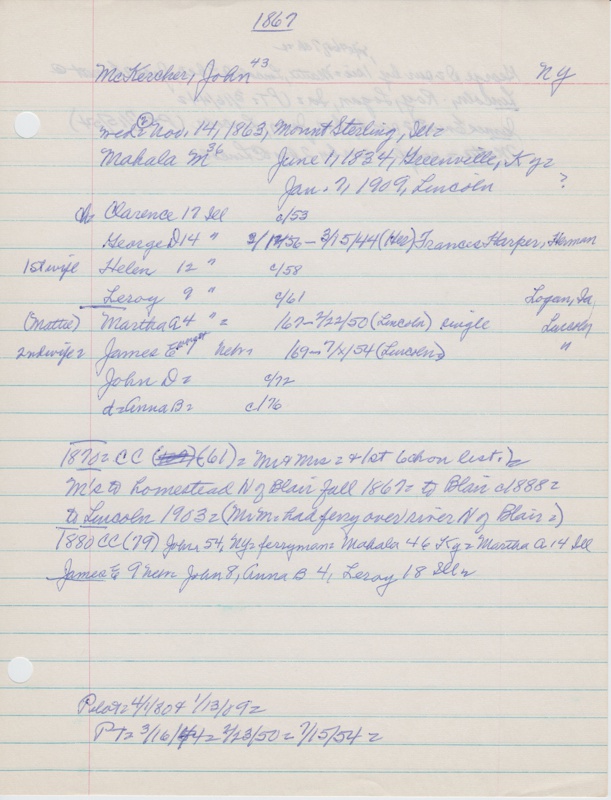 1867
McKercher, John 43 NY
wed 2 Nov. 14, 1863, Mount Sterling, Ill=
Mahala M 36 June 1, 1834, Greenville, Ky=
Jan. 7, 1909, Lincoln ?
ch Clarence 17 Ill c/53
George D 14 " 3/17/56 – 3/15/44 (Her) Francis Harper, Herman
1st wife Helen 12 " c/58
Leroy 9 " c/61 Logan, Ia
(Mattie) Martha A 4 " = 167 – 2/22/50 (Lincoln) single Lincoln
2nd wife = James E Nebr 169 – 7/2/54 (Lincoln) "
John D = c/72
d = Anna B = c/76
1870 = CC (61) = Mr & Mrs = & 1st 6 ch on list =
M's to homestead N of Blair fall 1867 = to Blair c1888 =
to Lincoln 1903 = (Mr M = had ferry over river N of Blair =)
1880 CC (79) John 54, NY = ferryman = Mahala 46 Ky = Martha A 14 Ill
James E 9 Nebr = John 8, Anna B 4, Leroy 18 Ill =
Pilot = 4/1/80 & 1/13/09 =
PT = 3/16/44 = 2/23/50 = 7/15/54 =